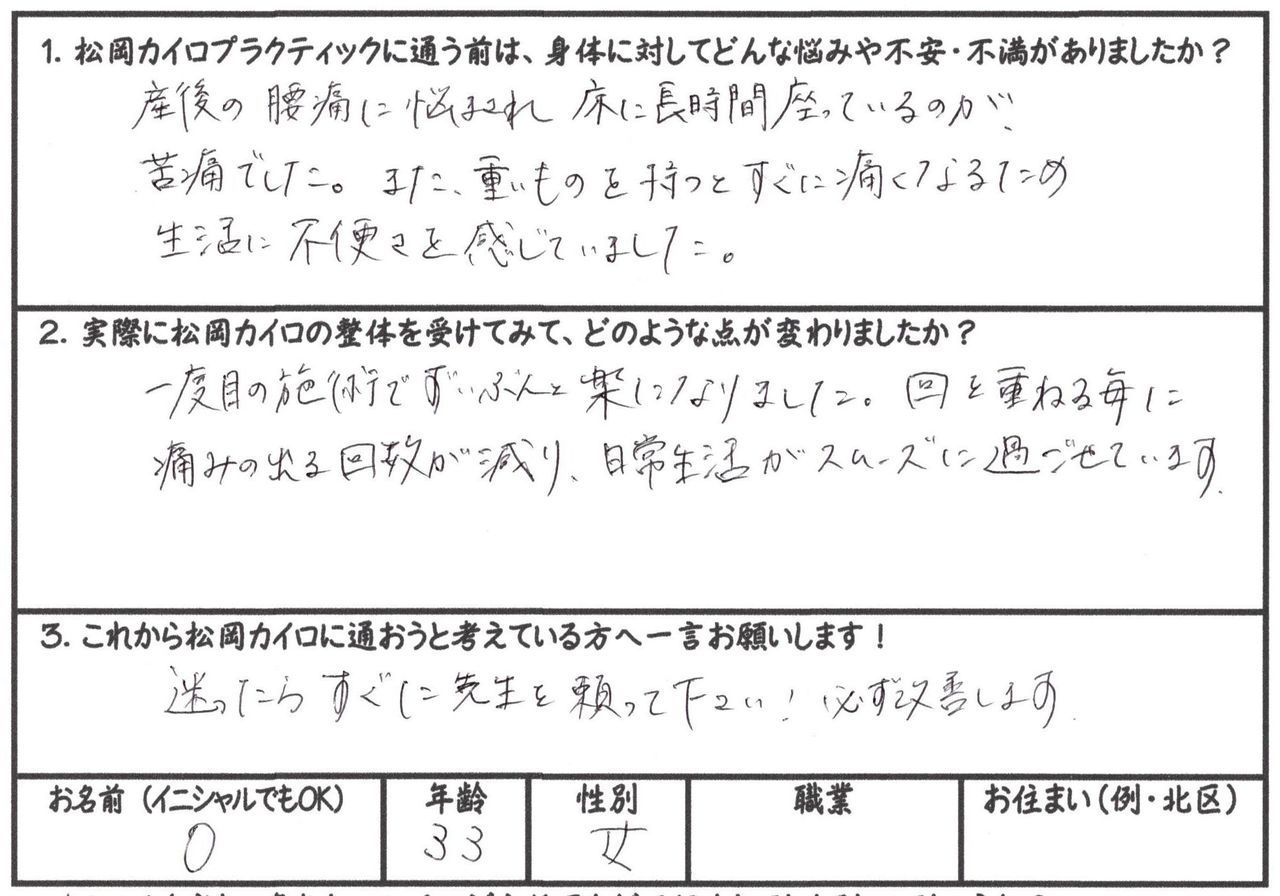 1. 松岡カイロプラクティックに通う前は、身体に対してどんな悩みや不安・不満がありましたか？
産後の腰痛に悩まされ 床に長時間座っているのが、
苦痛でした。また、重いものを持つとすぐに痛くなるため
生活に不便さを感じていました。
2. 実際に松岡カイロの整体を受けてみて、どのような点が変わりましたか？
一度目の施術でずいぶんと楽になりました。回を重ねる毎に
痛みの出る回数が減り、日常生活がスムーズに過ごせています.
3. これから松岡カイロに通おうと考えている方へ一言お願いします！
迷ったらすぐに先生を頼って下さい！必ず改善します.
お名前（イニシャルでもOK） 年齢 性別 職業 お住まい（例・北区）
O 33 女